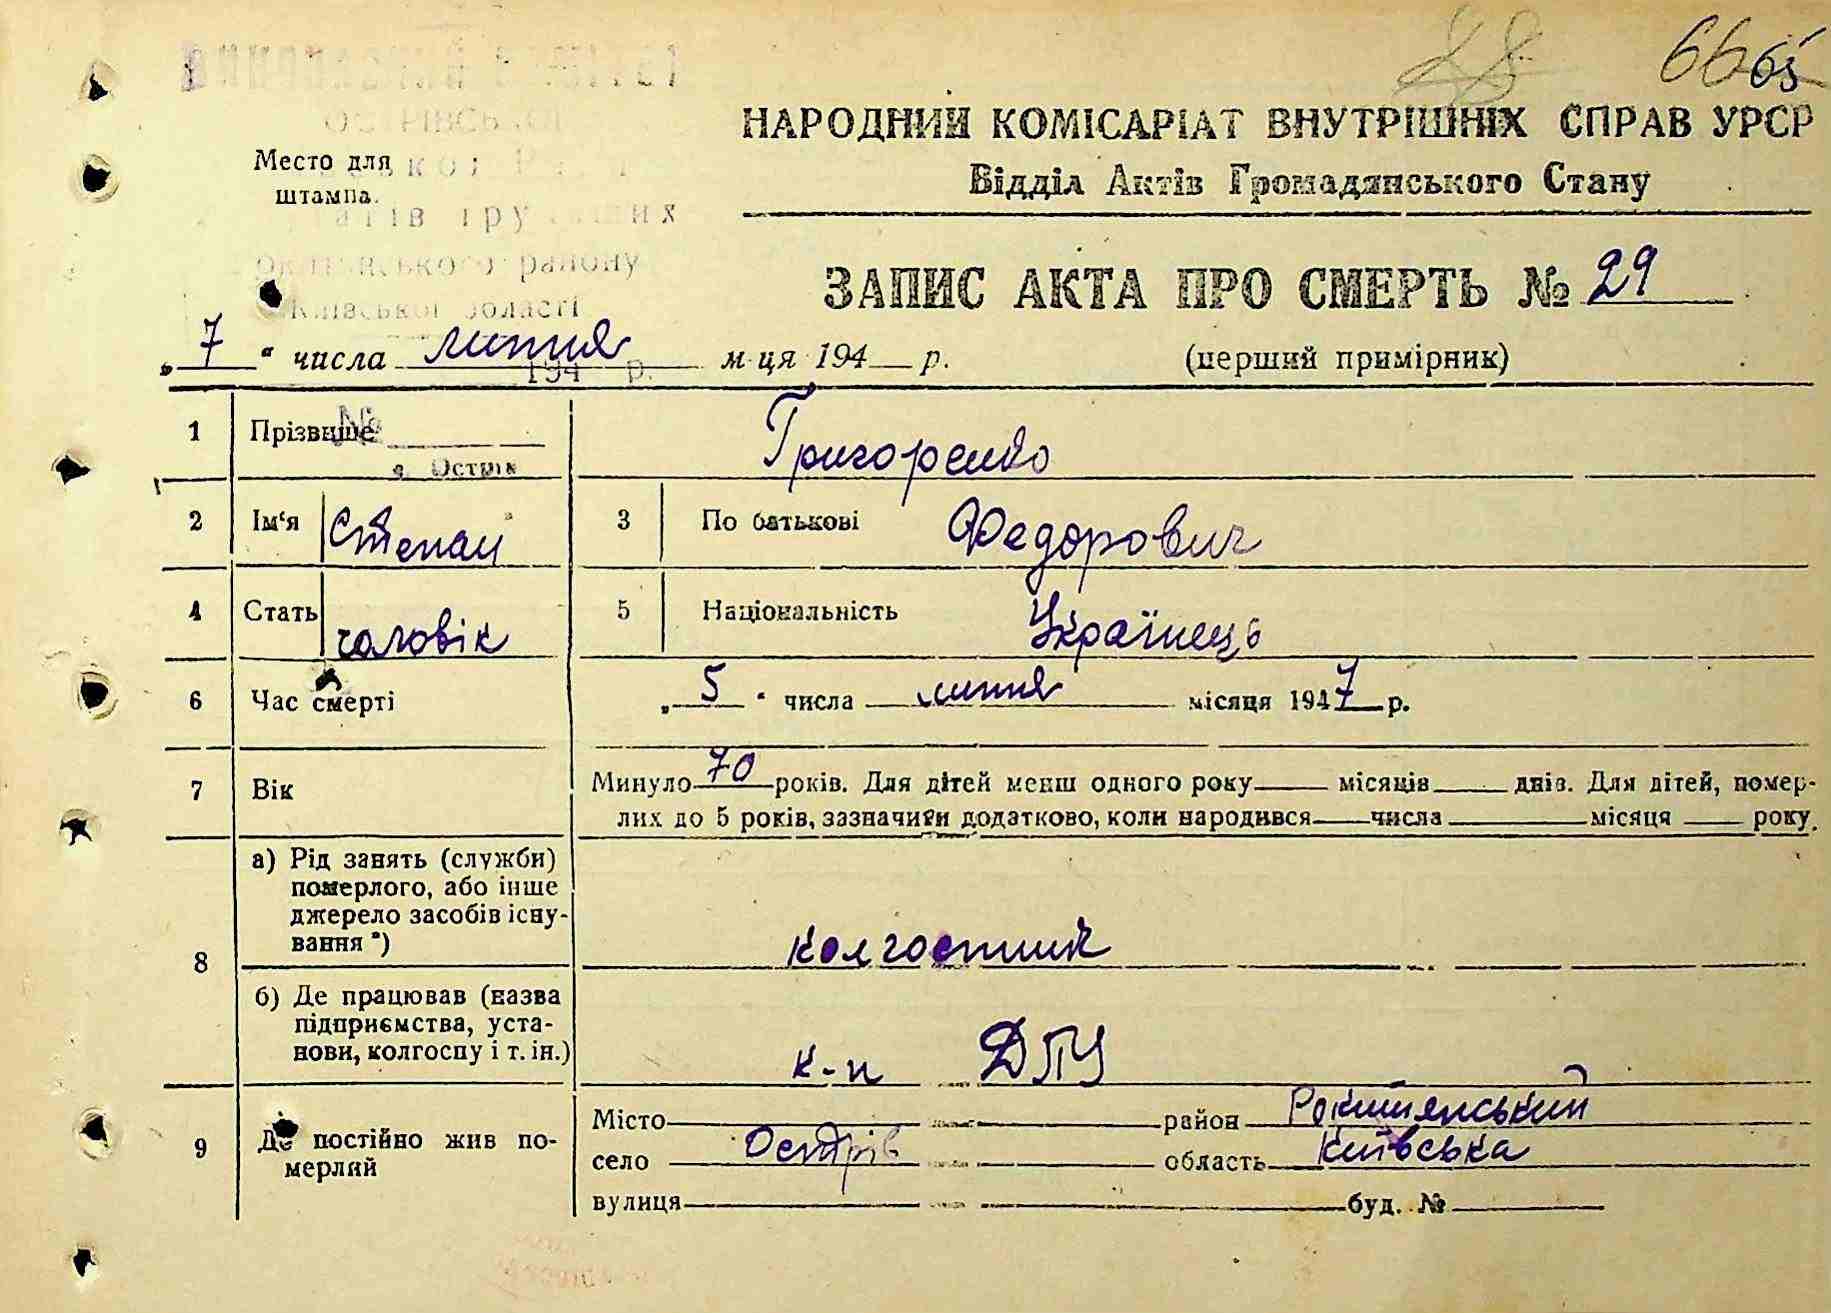 66 65
НАРОДНИЙ КОМІСАРІАТ ВНУТРІШНІХ СПРАВ УРСР
Відділ Актів Громадянського Стану
Место для
штампа.
району
Київської області
194 р.
№
с. Острів
ЗАПИС АКТА ПРО СМЕРТЬ № 29
„ 7 “ числа липня м-ця 194 р. (перший примірник)
1 Прізвище Григоренко
2 Ім‘я Степан 3 По батькові Федорович
4 Стать чоловік 5 Національність Українець
6 Час смерті „ 5 “ числа липня місяця 1947 р.
7 Вік Минуло 70 років. Для дітей менш одного року місяців днів. Для дітей, помер-
лих до 5 років, зазначити додатково, коли народився числа місяця року.
8 а) Рід занять (служби)
померлого, або інше
джерело засобів існу-
вання *)
колгоспник
б) Де працював (назва
підприємства, уста-
нови, колгоспу і т. ін.)
к-п ДПУ
9 Де постійно жив по-
мерлий
Місто район Рокитянський
село Острів область Київська
вулиця буд. №